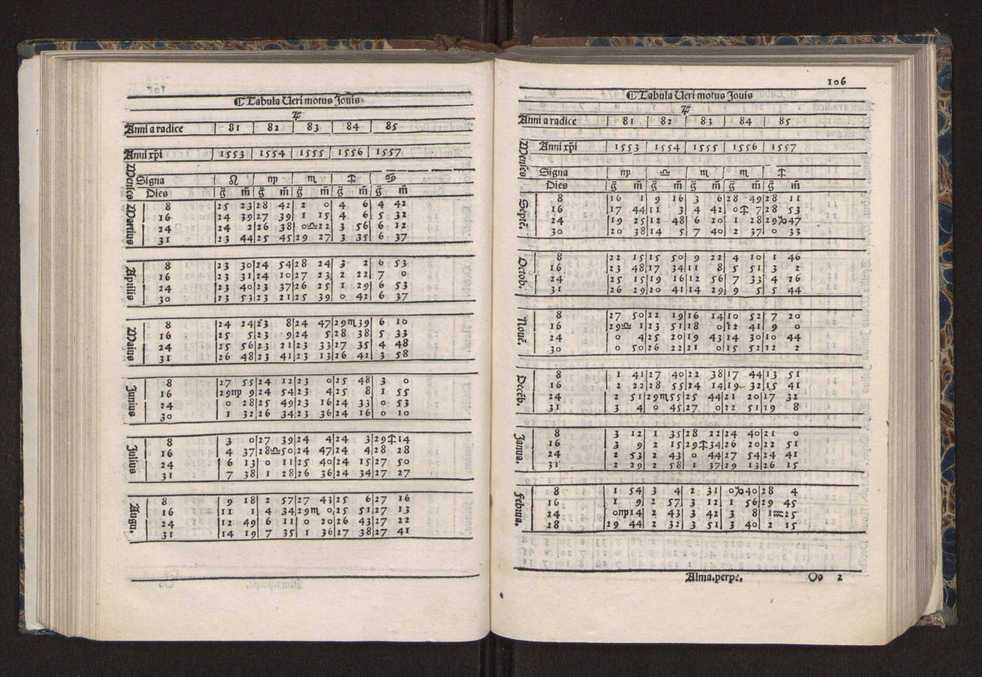 ☾Tabula Veri motus Jouis
♃
Anni a radice 81 82 83 84 85
Anni xp̄i 1553 1554 1555 1556 1557
Menses Signa ♌ ♍ ♏ ♐ ♋
Dies g̃ m̃ g̃ m̃ g̃ m̃ g̃ m̃ g̃ m̃
Martius
8 25 23 28 42 2 0 4 6 4 42
16 24 39 27 39 1 15 4 6 5 32
24 24 2 26 38 0♎22 3 56 6 12
31 23 44 25 45 29 27 3 35 6 37
Aprilis
8 23 30 24 54 28 24 3 2 6 53
16 23 31 24 10 27 23 2 22 7 0
24 23 40 23 37 26 25 1 29 6 53
30 23 53 23 21 25 39 0 42 6 37
Maius
8 24 24 23 8 24 47 29♏39 6 10
16 25 5 23 9 24 5 28 38 5 33
24 25 56 23 21 23 33 27 35 4 48
31 26 48 23 41 23 13 26 42 3 58
Junius
8 27 55 24 12 23 0 25 48 3 0
16 29♍9 24 54 23 4 25 8 1 55
24 0 28 25 49 23 16 24 33 0 53
30 1 32 26 34 23 36 24 16 0 10
Julius
8 3 0 27 39 24 4 24 3 29♐14
16 4 37 28♎50 24 47 24 4 28 28
24 6 13 0 11 25 40 24 15 27 50
31 7 38 1 28 26 36 24 34 27 27
Augu.
8 9 18 2 57 27 43 25 6 27 16
16 11 1 4 34 29♏0 25 51 27 13
24 12 49 6 11 0 20 26 43 27 22
31 14 19 7 35 1 36 27 38 27 41
106
☾Tabula Veri motus Jouis
♃
Anni a radice 81 82 83 84 85
Menses Anni xp̄i 1553 1554 1555 1556 1557
Signa ♍ ♎ ♏ ♏ ♐
Dies g̃ m̃ g̃ m̃ g̃ m̃ g̃ m̃ g̃ m̃
Septē.
8 16 1 9 16 3 6 28 49 28 11
16 17 44 11 3 4 42 0♐7 28 53
24 19 25 12 48 6 20 1 28 29♑47
30 20 38 14 5 7 40 2 37 0 33
Octob.
8 22 15 15 50 9 22 4 10 1 46
16 23 48 17 34 11 8 5 51 3 2
24 25 15 19 16 12 56 7 33 4 16
31 26 29 20 41 14 29 9 5 5 44
Nouē.
8 27 50 22 19 16 14 10 52 7 20
16 29♎1 23 51 18 0 12 41 9 0
24 0 4 25 20 19 43 14 30 10 44
30 0 50 26 22 21 0 15 52 12 2
Decēb.
8 1 41 27 40 22 38 17 44 13 51
16 2 22 28 55 24 14 19 32 15 41
24 2 51 29♏55 25 44 21 20 17 32
31 3 4 0 45 27 0 22 51 19 8
Janua.
8 3 12 1 35 28 22 24 40 21 0
16 3 9 2 15 29♐34 26 20 22 51
24 2 53 2 43 0 44 27 54 24 41
31 2 29 2 58 1 37 29 13 26 15
Febua.
8 1 54 3 4 2 31 0♑40 28 4
16 1 9 2 57 3 12 1 56 29 45
24 0♍14 2 43 3 42 3 8 1♒25
28 29 44 2 32 3 51 3 40 2 15
Alma.perpe. Oo 2